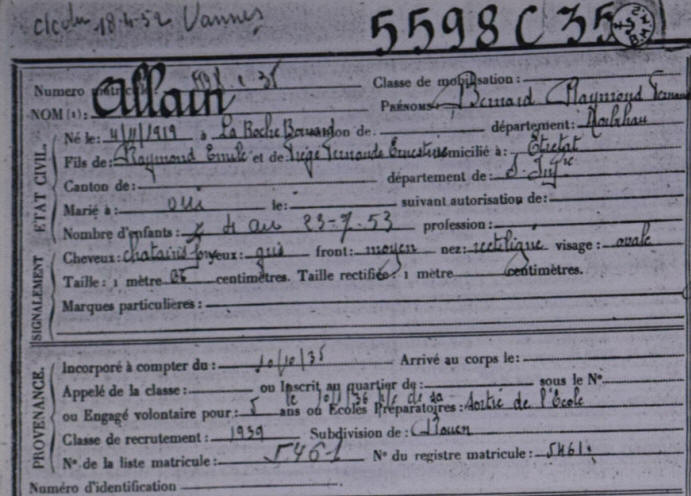 18-4-52 Vannes
5598 C 35
Numero matricule: 5598 c 35 Classe de mobilisation:
NOM (1): Allain PRÉNOMS: Bernard Raymond Fernand
ETAT CIVIL.
Né le: 4/4/1919 à La Roche Bernard canton de: département: Morbihan
Fils de: Raymond Emile et de Fernande Ernestine domicilié à: Etretat
Canton de: département de: S. Infre
Marié à: oui le: suivant autorisation de:
Nombre d'enfants: au 23-7-53 profession:
SIGNALEMENT
Cheveux: chatains yeux: gris front: moyen nez: rectiligne visage: ovale
Taille: 1 mètre centimètres. Taille rectifiée: 1 mètre centimètres.
Marques particulières:
PROVENANCE.
Incorporé à compter du: 10/10/35 Arrivé au corps le:
Appelé de la classe: ou Inscrit au quartier de: sous le N°
ou Engagé volontaire pour: 5 ans ou Écoles Préparatoires: Sortie de l'Ecole
Classe de recrutement: 1939 Subdivision de: Rouen
N° de la liste matricule: 5461 N° du registre matricule: 5461
Numéro d'identification